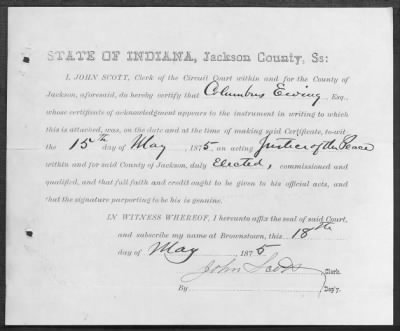 STATE OF INDIANA, Jackson County, Ss:
I, JOHN SCOTT, Clerk of the Circuit Court within and for the County of
Jackson, aforesaid, do hereby certify that Columbus Ewing, Esq.,
whose certificate of acknowledgment appears to the instrument in writing to which
this is attached, was, on the date and at the time of making said Certificate, to-wit
the 15th day of May, 1875, an acting Justice of the Peace
within and for said County of Jackson, duly Elected, commissioned and
qualified, and that full faith and credit ought to be given to his official acts, and
that the signature purporting to be his is genuine.
IN WITNESS WHEREOF, I hereunto affix the seal of said Court,
and subscribe my name at Brownstown, this 18th
day of May 1875
John Scott Clerk.
By Dep'y.